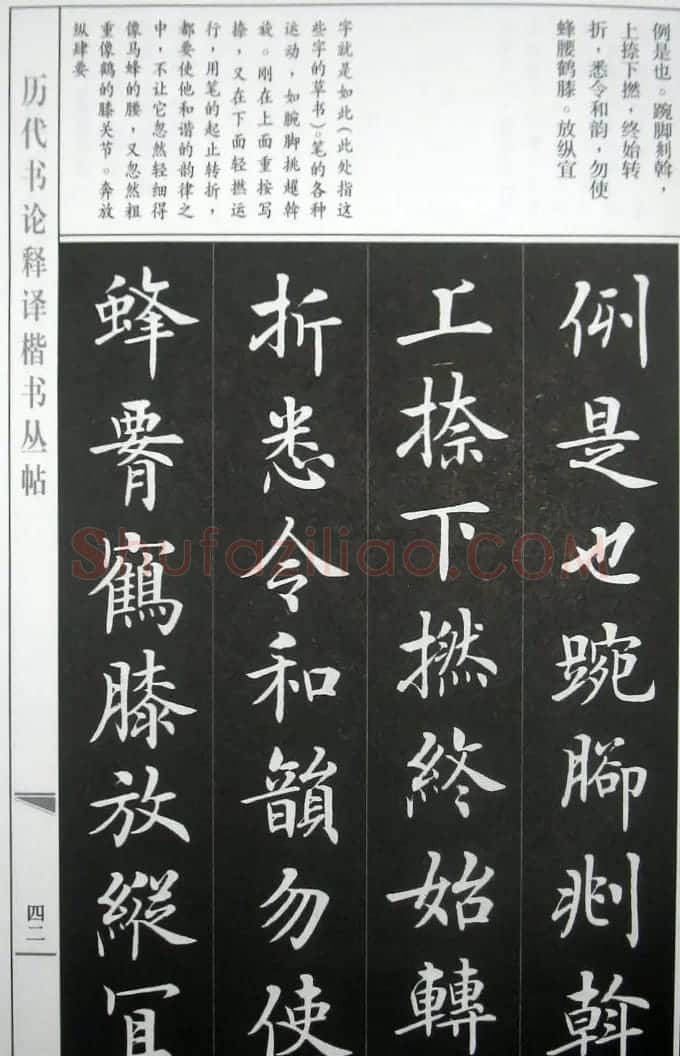 例是也。踠脚斡，
上捺下撚，终始转
折，悉令和韵，勿使
蜂腰鹤膝。放纵宜
字就是如此（此处指这
些字的草书）。笔的各种
运动，如腕脚挑趯斡
旋。刚在上面重按写
捺，又在下面轻撚运
行，用笔的起止转折，
都要使他和谐的韵律之
中，不让它忽然轻细得
像马蜂的腰，又忽然粗
重像鹤的膝关节。奔放
纵肆要
例是也踠腳斡
上捺下撚終始轉
折悉令和韻勿使
蜂腰鶴膝放縱宜
历代书论释译楷书丛帖
四二
Shufaziliao.COM